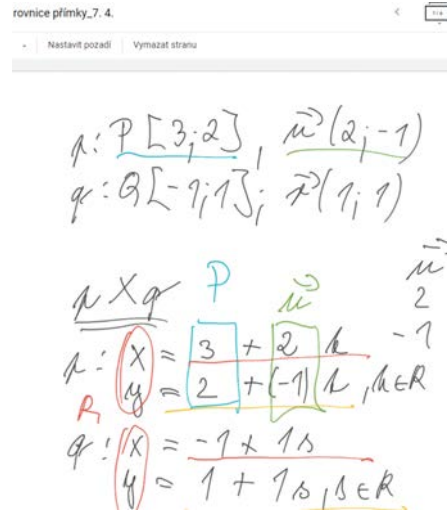 rovnice přímky_7. 4.
Nastavit pozadí Vymazat stranu
p: P[3;2], u(2;-1)
q: Q[-1;1]; v(1;1)
p X q P u
u
2
-1
p: x = 3 + 2 k
y = 2 + (-1) k, k∈R
R
q: x = -1 + 1s
y = 1 + 1s, s∈R